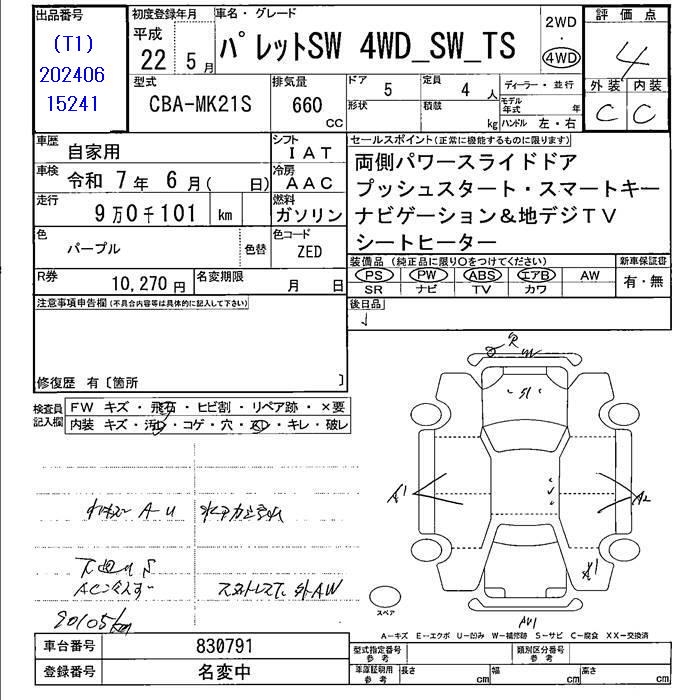 出品番号
(T1)
202406
15241
初度登録年月
平成
22 5月
車名・グレード
パレットSW 4WD_SW_TS
2WD
・
4WD
評価点
4
外装 内装
C C
型式
CBA-MK21S
排気量
660
CC
ドア
5
形状
定員
4 人
積載
kg
ディーラー・並行
モデル年式 年
ハンドル 左・右
車歴
自家用
シフト
IAT
車検
令和 7年 6月( 日)
冷房
AAC
走行
9万0千101 km
燃料
ガソリン
色
パープル
色替
色コード
ZED
R券
10,270円
名変期限
月 日
セールスポイント(正常に機能するものに限ります)
両側パワースライドドア
プッシュスタート・スマートキー
ナビゲーション&地デジTV
シートヒーター
装備品(純正品に限り○をつけてください)
PS PW ABS エアB AW
SR ナビ TV カワ
新車保証書
有・無
後日品
注意事項申告欄(不具合内容等は具体的に記入して下さい)
修復歴 有〔箇所 〕
検査員記入欄
FW キズ・飛石・ヒビ割・リペア跡・×要
内装 キズ・汚レ・コゲ・穴・スレ・キレ・破レ
A U
下廻り S
スタットレスT、外AW
90105km
R
S1
A1
A2
X1
AU1
スペア
A-キズ E-エクボ U-凹み W-補修跡 S-サビ C-腐食 XX-交換済
車台番号
830791
登録番号
名変中
型式指定番号
参考
類別区分番号
参考
車庫証明用
参考
長さ cm
幅 cm
高さ cm